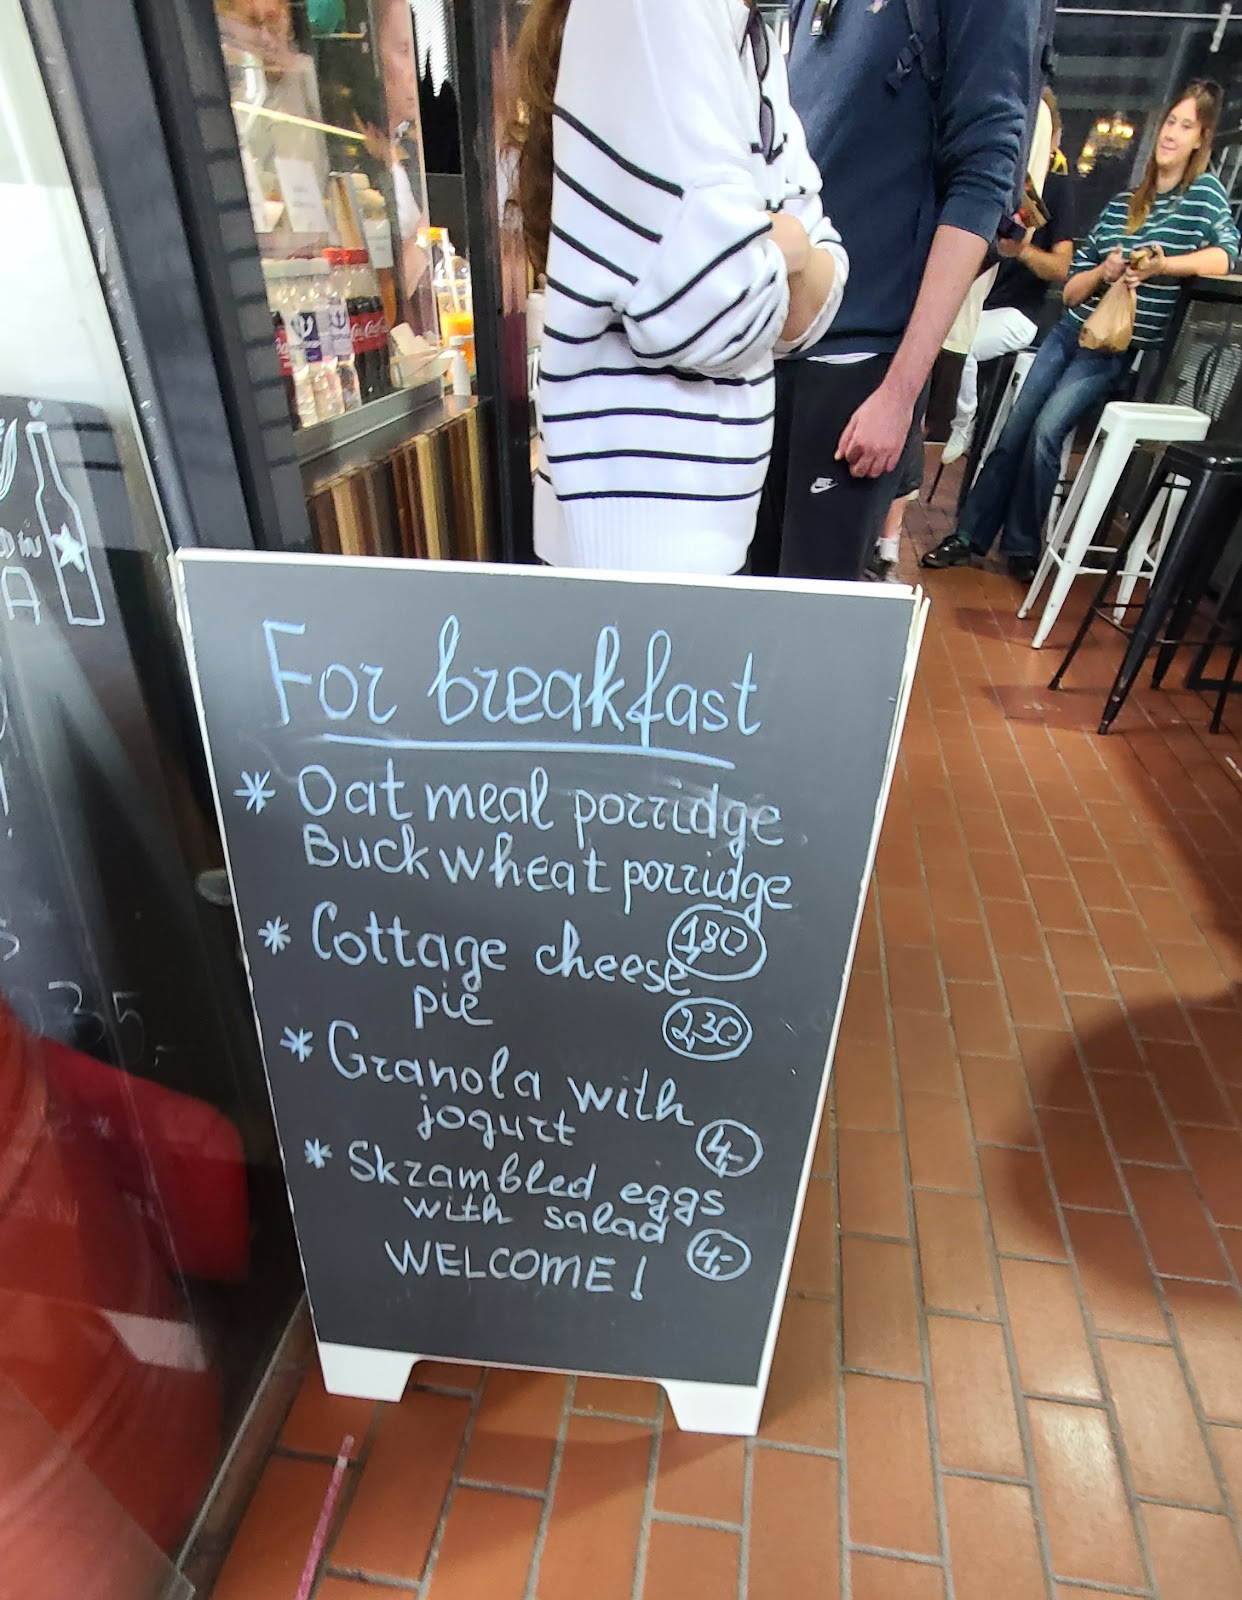 For breakfast
* Oatmeal porridge
Buckwheat porridge
1,80
* Cottage cheese
pie
2,30
* Granola with
jogurt
4,-
* Skrambled eggs
with salad
4,-
WELCOME!
Coca-Cola
NIKE
IN
A
35